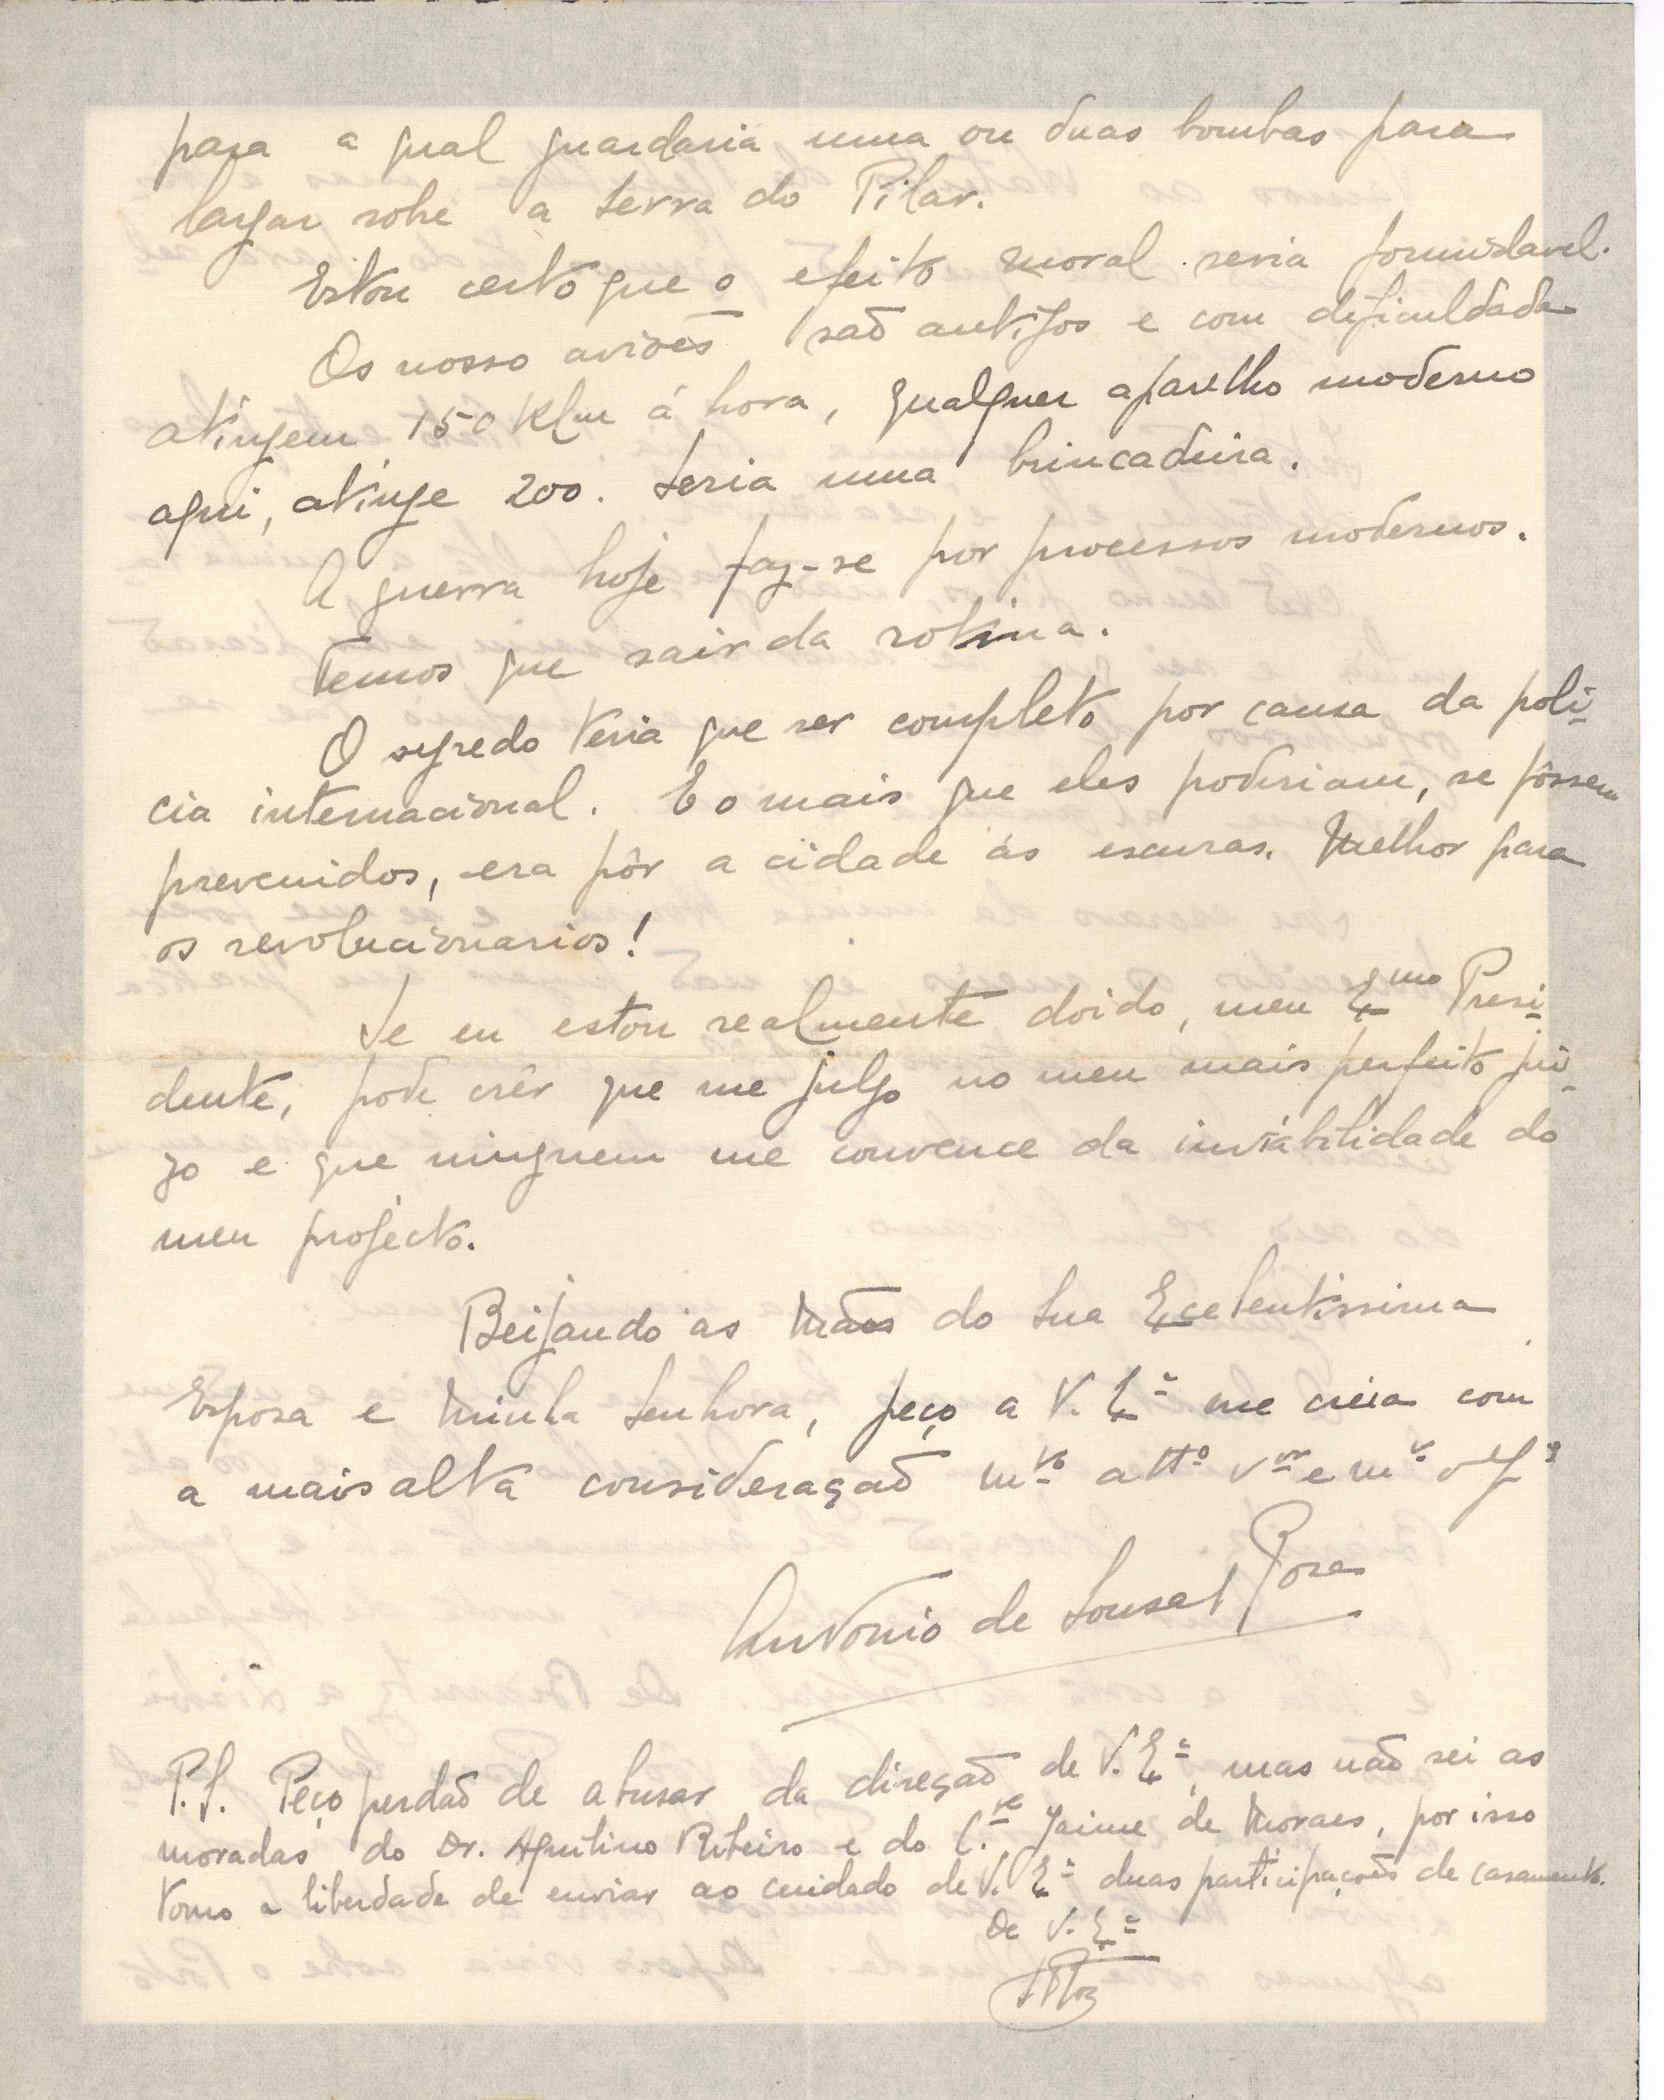 para a qual guardaria uma ou duas bombas para
largar sobre a Serra do Pilar.
Estou certo que o efeito moral seria formidavel.
Os nosso aviões são antigos e com dificuldade
atingem 150 Klm á hora, qualquer aparelho moderno
aqui, atinge 200. Seria uma brincadeira.
A guerra hoje faz-se por processos modernos.
Temos que sair da rotina.
O segredo teria que ser completo por causa da poli-
cia internacional. E o mais que eles poderiam, se fôssem
prevenidos, era pôr a cidade ás escuras. Melhor para
os revolucionarios!
Se eu estou realmente doido, meu Exmo Presi-
dente, pode crêr que me julgo no meu mais perfeito jui-
zo e que ninguem me convence da inviabilidade do
meu projecto.
Beijando as Mãos do Sua Excelentissima
Esposa e Minha Senhora, peço a V. Exª me creia com
a mais alta consideração mto atto vor e mto
Antonio de Sousa
P.S. Peço perdão de abusar da direção de V. Exª, mas não sei as
moradas do Dr. Agostinho Ribeiro e do C.te Jaime de Moraes, por isso
tomo a liberdade de enviar ao cuidado de V. Exª duas participações de casamento.
De V. Exª